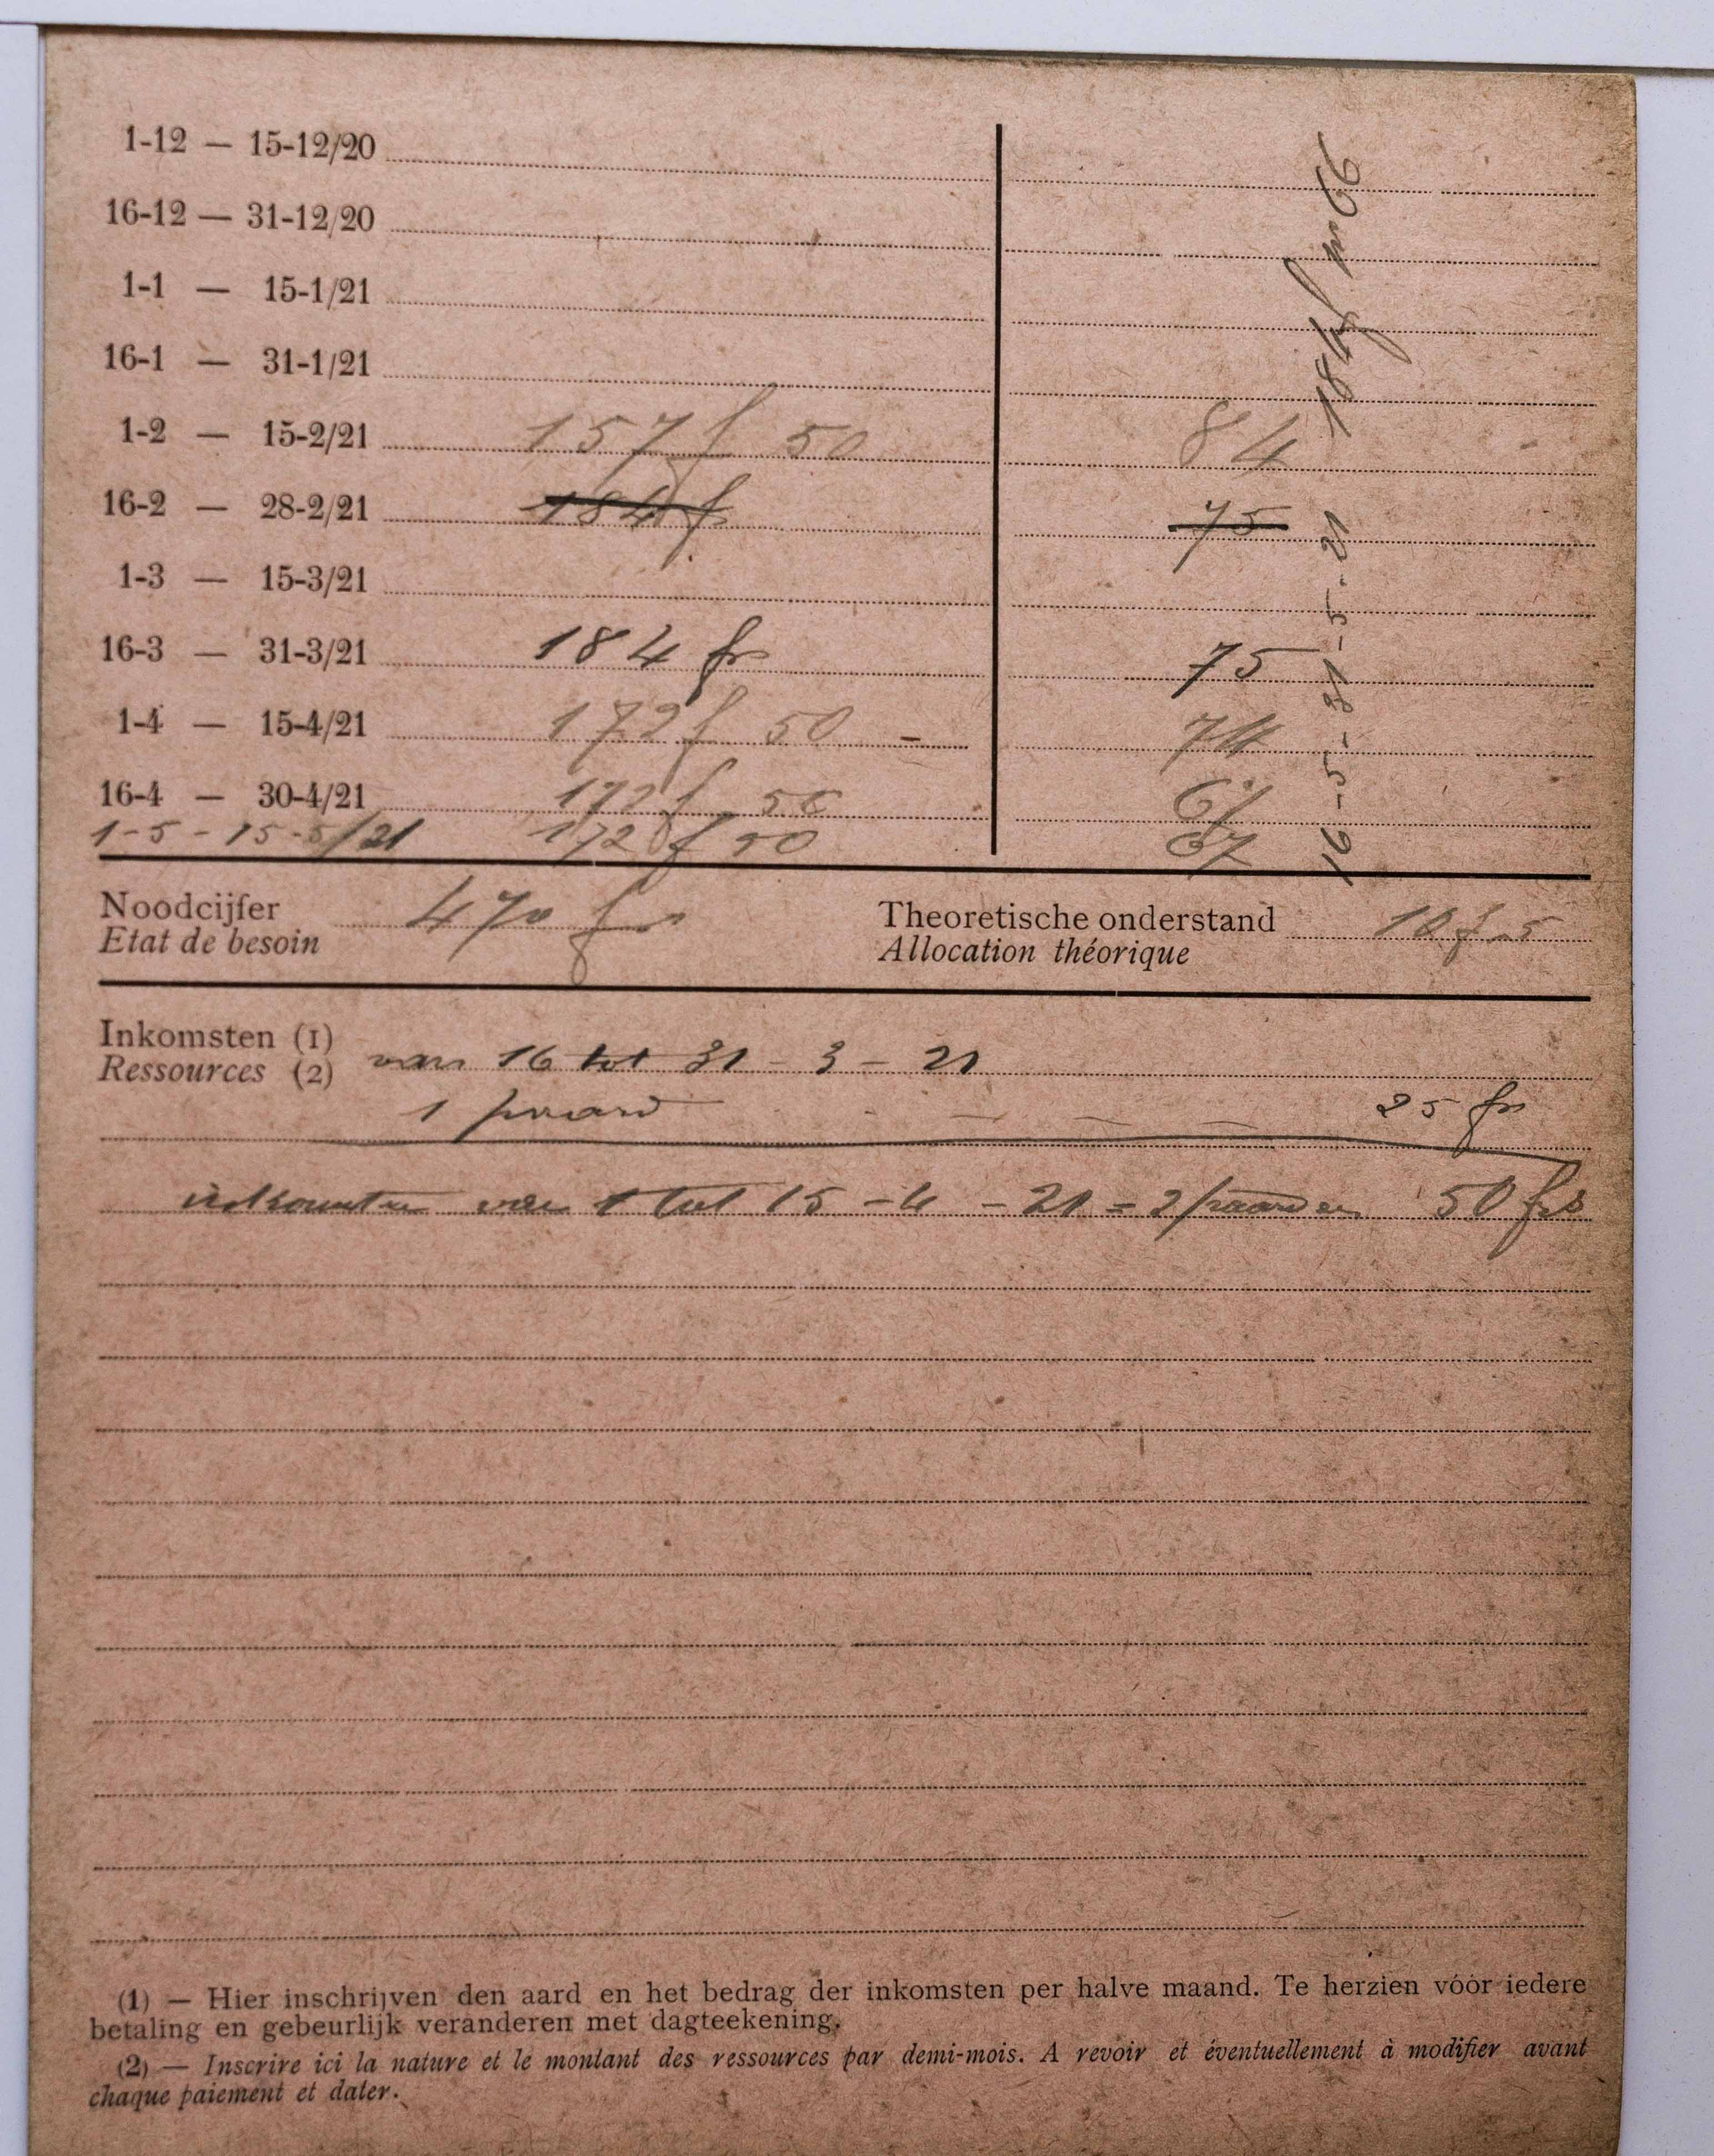 1-12 — 15-12/20
16-12 — 31-12/20
1-1 — 15-1/21
16-1 — 31-1/21
1-2 — 15-2/21 157 f 50 84
16-2 — 28-2/21 184 f 75
1-3 — 15-3/21
16-3 — 31-3/21 184 fr 75
1-4 — 15-4/21 172 f 50 - 74
16-4 — 30-4/21 172 f 50 67
1-5 - 15-5/21 172 f 50 67
16-5- 31-5-21 184 f n 66
Noodcijfer 470 frs Theoretische onderstand 10 f 5
Etat de besoin Allocation théorique
Inkomsten (1)
Ressources (2) van 16 tot 31 - 3 - 21
1 paard 25 fr
inkomsten van 1 tot 15 - 4 - 21 = 2 paarden 50 frs
(1) — Hier inschrijven den aard en het bedrag der inkomsten per halve maand. Te herzien vóór iedere
betaling en gebeurlijk veranderen met dagteekening.
(2) — Inscrire ici la nature et le montant des ressources par demi-mois. A revoir et éventuellement à modifier avant
chaque paiement et dater.